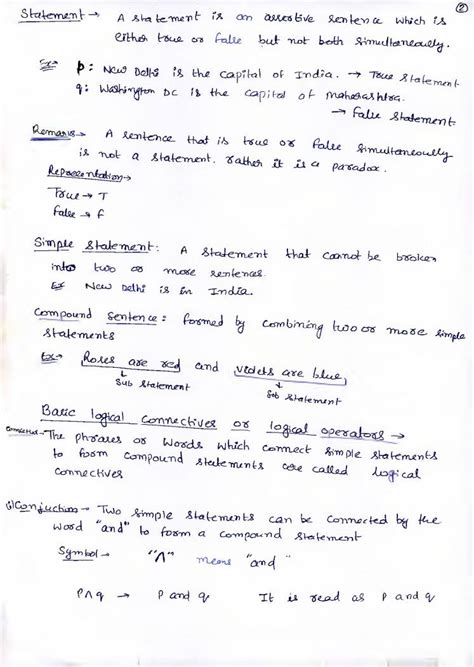 ②
Statement → A statement is an assertive sentence which is
either true or false but not both simultaneously.
Ex→ p: New Delhi is the capital of India. → True statement
q: Washington DC is the capital of maharashtra.
→ False statement
Remarks → A sentence that is true or false simultaneously
is not a statement. rather it is a paradox.
Representation→
True → T
False → F
Simple statement: A statement that cannot be broken
into two or more sentences.
Ex New Delhi is in India.
Compound sentence: formed by combining two or more simple
statements
Ex→ Roses are red and violets are blue,
Sub statement
Sub statement
Basic logical connectives or logical operators →
Connectives→The phrases or words which connect simple statements
to form compound statements are called logical
connectives
(i) Conjuction→ Two simple statements can be connected by the
word "and" to form a compound statement
Symbol→ "Λ" means "and"
PΛq → P and q It is read as P and q